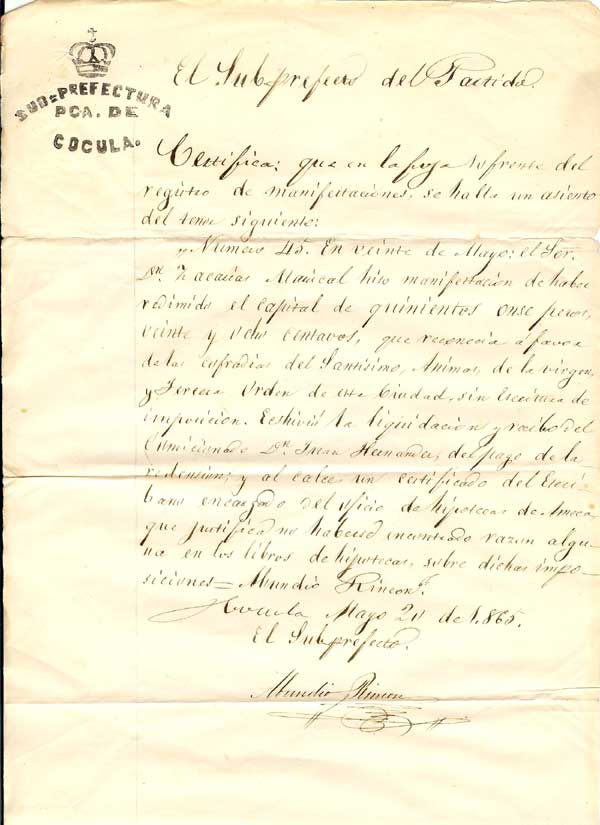 SUB=PREFECTURA
PCA. DE
COCULA.
El Subprefecto del Partido.
Certifica: que en la foja 10 frente del
registro de manifestaciones, se halla un asiento
del tenor siguiente:
"Numero 45. En veinte de Mayo: el Sor.
Dn. Zacarias Mariscal hiso manifestacion de haber
redimido el capital de quinientos onse pesos,
veinte y seis centavos, que reconocia á favor
de las cofradias del Santisimo, Animas, de la virgen,
y Tercera Orden de esta Ciudad, sin Escritura de
imposicion. Ecshivió la liquidacion y recibo del
Comicionado Dn. Juan Hernandez, del pago de la
redension; y al calce un certificado del Escri-
bano encargado del oficio de hipotecas de Ameca
que justifica no haberse encontrado razon algu-
na en los libros de hipotecas, sobre dichas impo-
siciones = Abundio Rincon."
Cocula Mayo 20 de 1865.
El Subprefecto.
Abundio Rincon